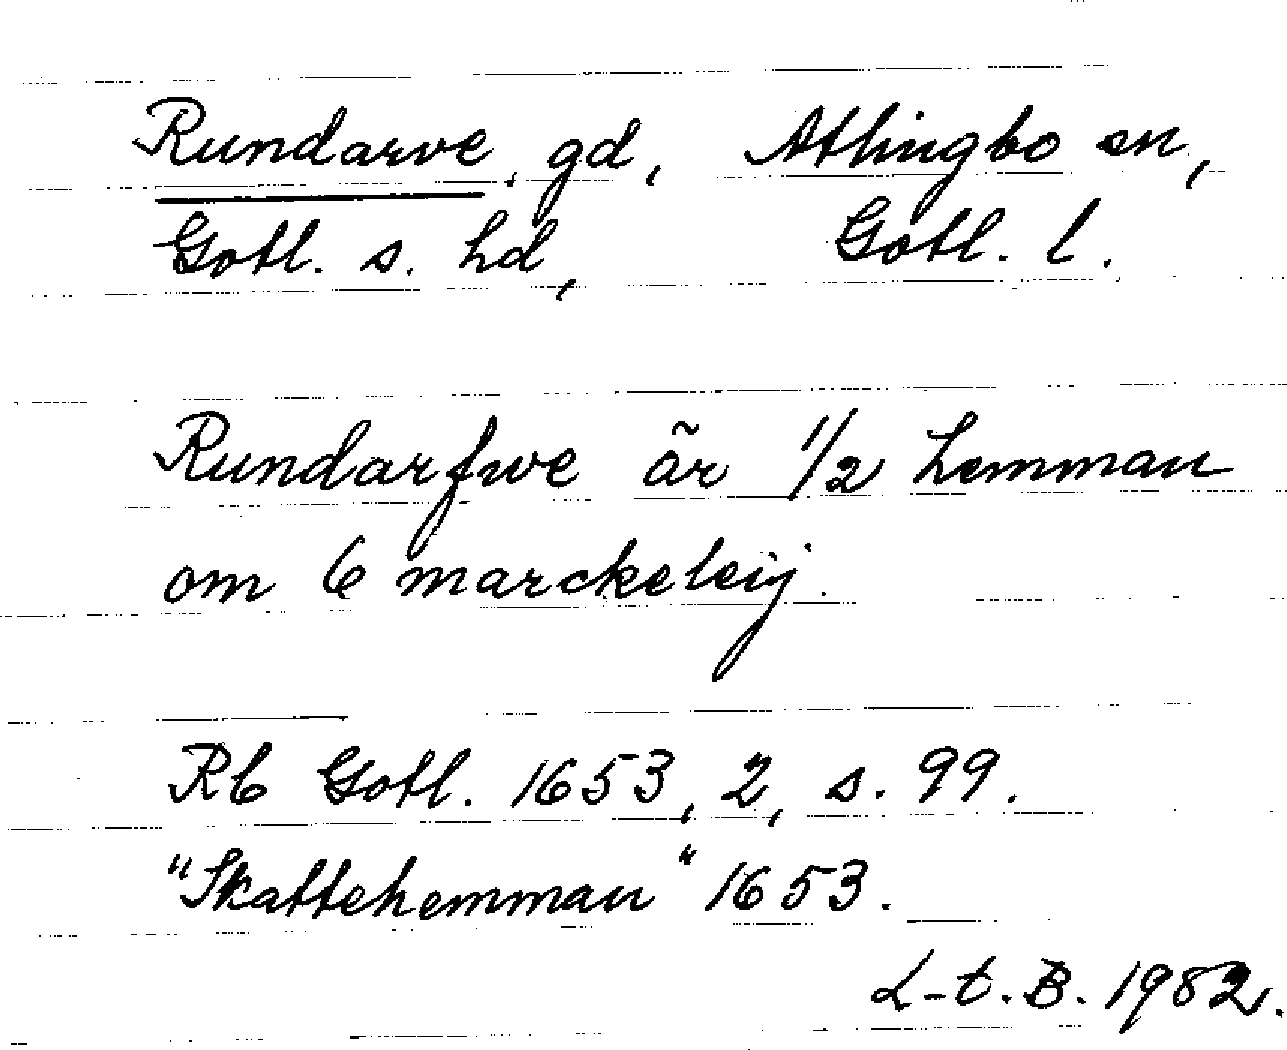 Rundarve, gd, Atlingbo sn,
Gotl. s. hd, Gotl. l.
Rundarfwe är 1/2 hemman
om 6 marckeleij.
Rb Gotl. 1653, 2, s. 99.
"Skattehemman" 1653.
L-t. B. 1982.